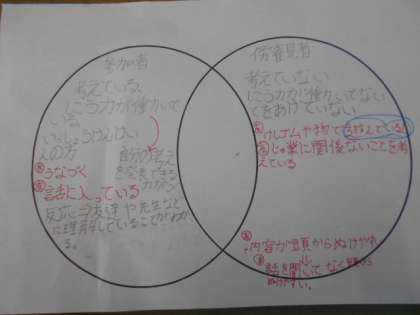 参加者
考えている
しこう力が働いて
いる
いっしょうけんめい
自分の考え
を発表できる
うなづく
話に入っている
反応→友達や先生など
に理解していることがわか
る。
傍観者
考えていない
しこう力が働いてない
てをあげていない
けしゴムや物で遊んでいる
じゅ業に関係ないことを考
えている
内容が頭からぬけ
話を聞いてなく